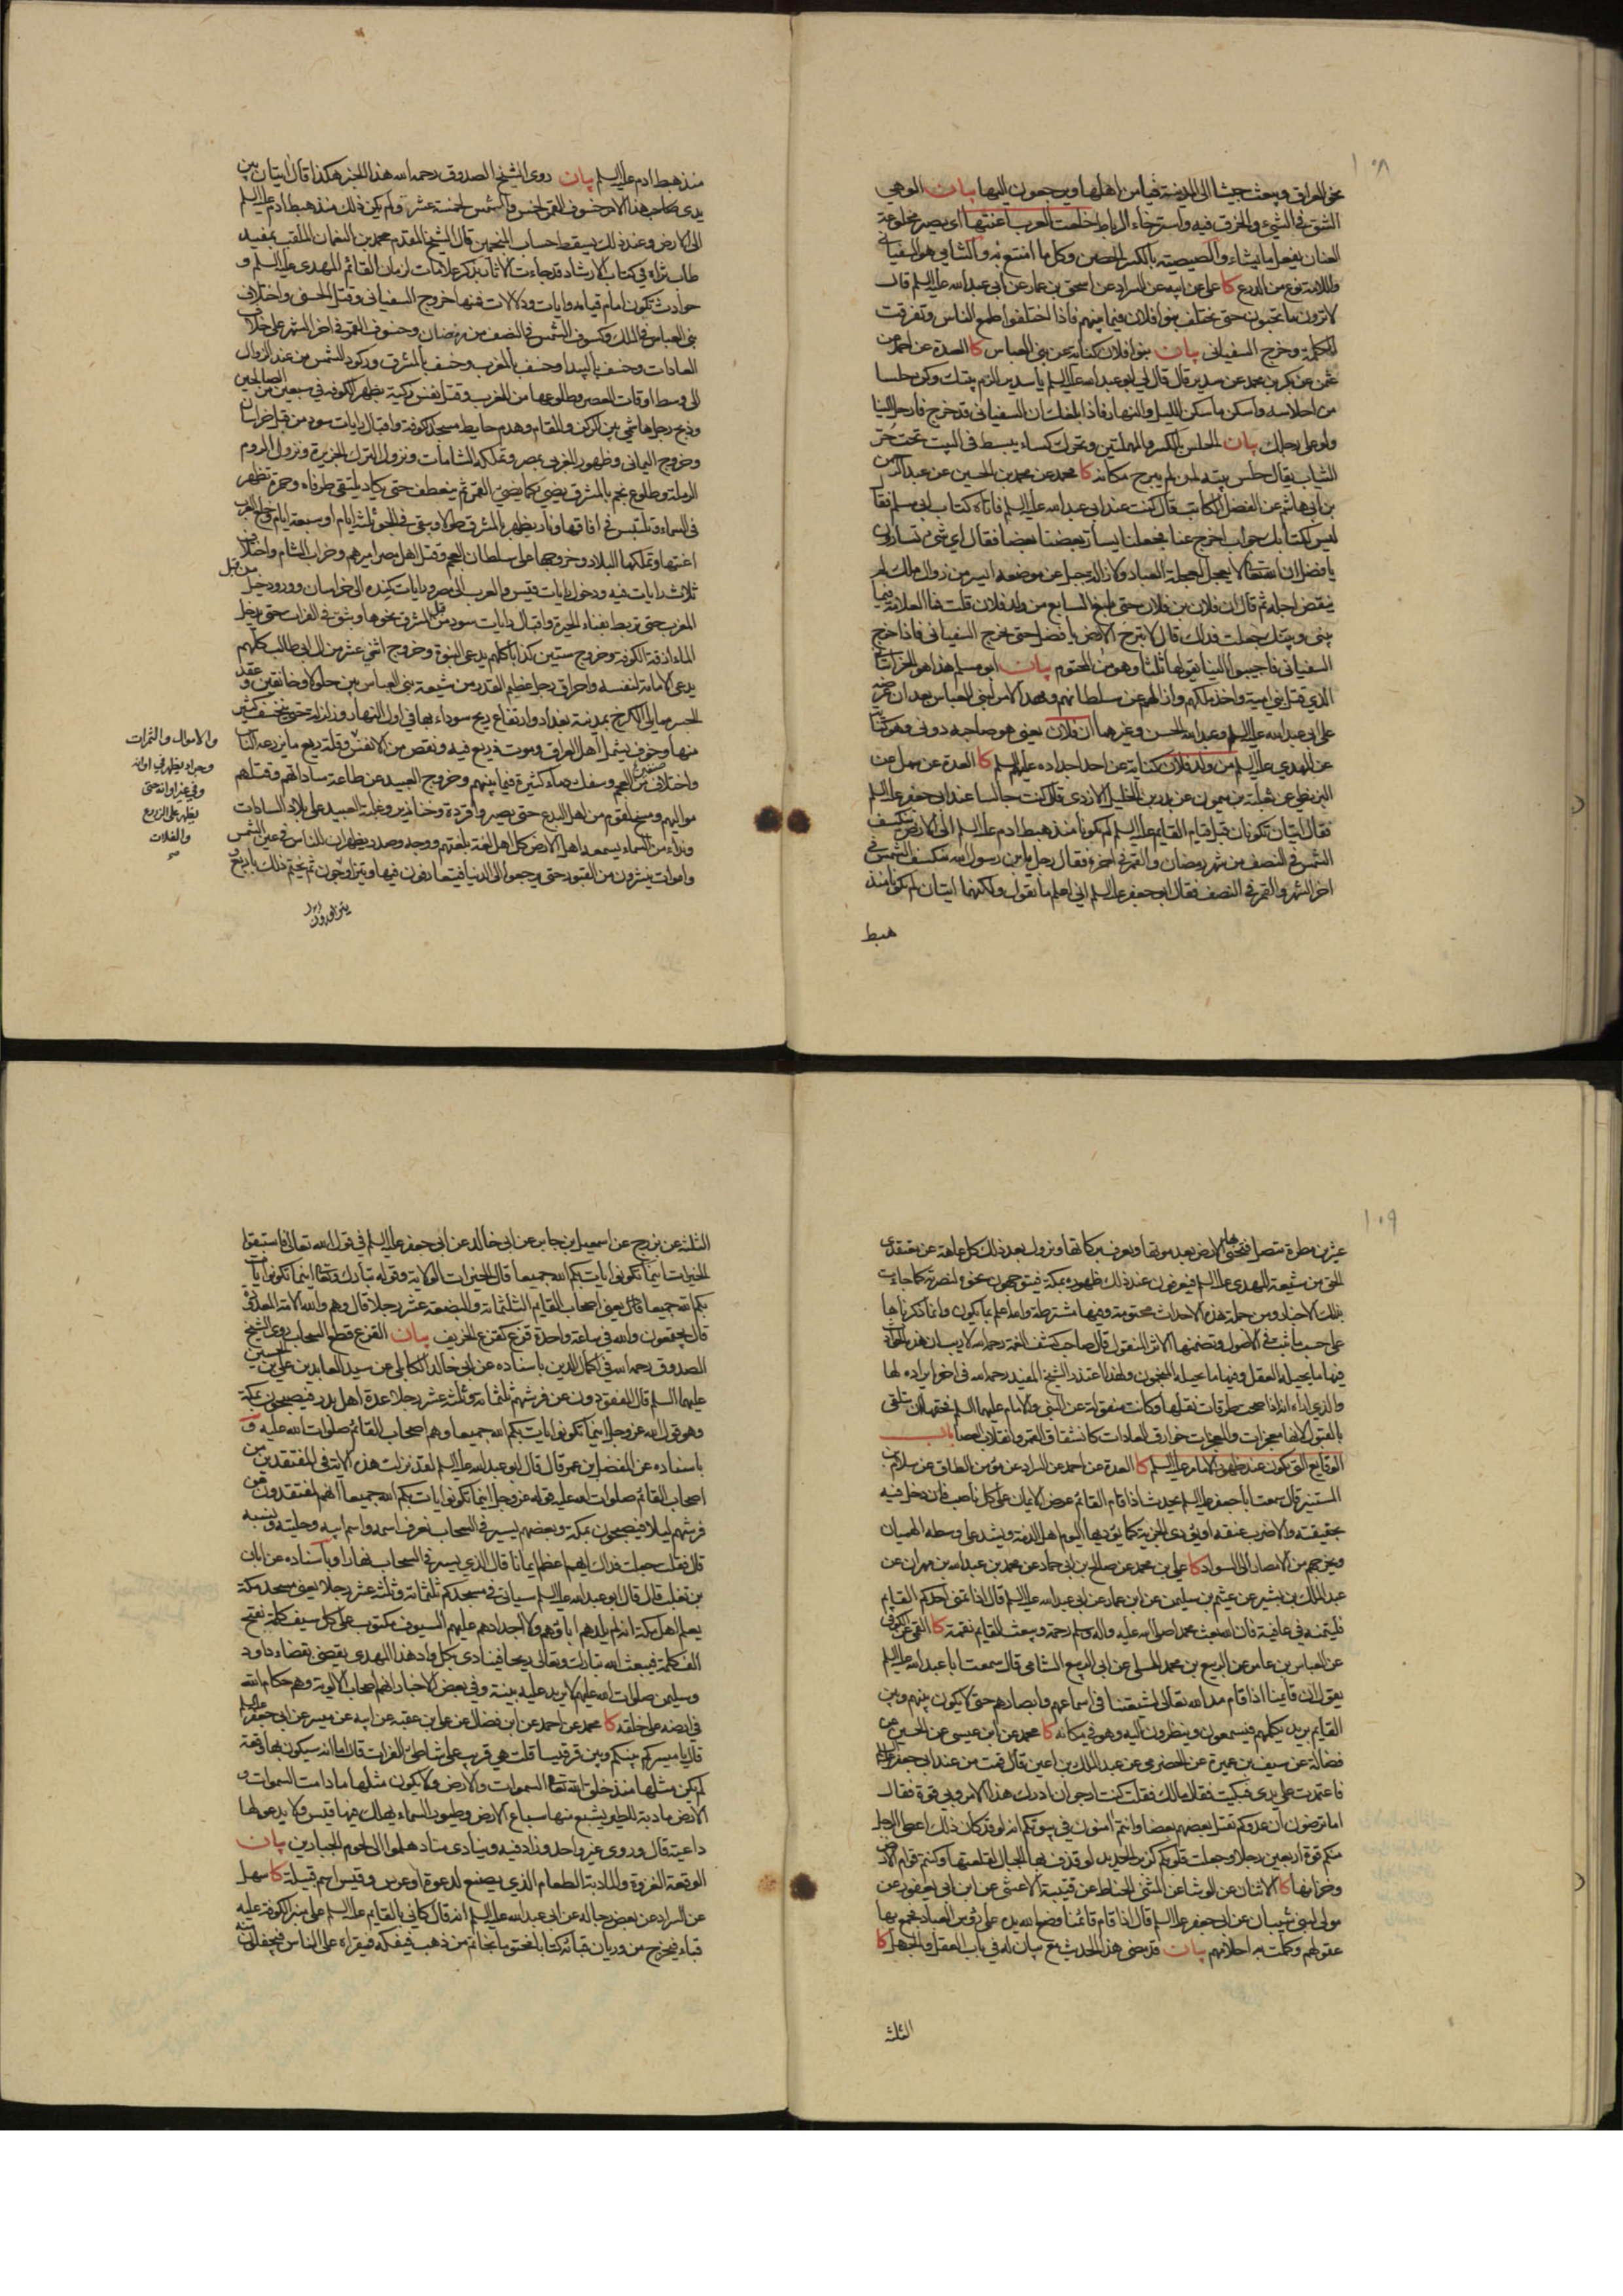 ١٠٨
نحو العراق ويبعث جيشا الى المدينة فيأمن اهلها ويرجعون اليها بيان الوهي
الشق في الشيء والخرق فيه واسترخاء الرباط خلعت العرب اعنتها اي يصير مخلوعة
العنان يفعل ما يشاء والصيصية بالكسر الحصن وكل ما امتنع به والشامي هو السفياني
واللامة نوع من الدرع كا علي عن ابيه عن السراد عن اسحق بن عمار عن ابي عبدالله عليه السلم قال
لا ترون ما تحبون حتى يختلف بنو فلان فيما بينهم فاذا اختلفوا طمع الناس وتفرقت
الكلمة وخرج السفياني بيان بنو فلان كناية عن بني العباس كا العدة عن احمد عن
عثمن عن بكر بن محمد عن سدير قال قال لي ابو عبدالله عليه السلم يا سدير الزم بيتك وكن حلسا
من احلاسه واسكن ما سكن الليل والنهار فاذا بلغك ان السفياني قد خرج فارحل الينا
ولو على رجلك بيان الحلس بالكسر والمهملتين ويحرك كساء يبسط في البيت تحت حر
الثياب يقال حلس بيته لمن لم يبرح مكانه كا محمد عن محمد بن الحسين عن عبد الرحمن
بن ابي هاشم عن الفضل الكاتب قال كنت عند ابي عبدالله عليه السلم فاتاه كتاب ابي مسلم فقال
ليس لكتابك جواب اخرج عنا فجعلنا يسار بعضنا بعضا فقال اي شيء تسارون
يا فضل ان الله تعالى لا يعجل لعجلة العباد ولازالة جبل عن موضعه ايسر من زوال ملك لم
ينقض اجله ثم قال ان فلان بن فلان حتى بلغ السابع من ولد فلان قلت فما العلامة فيما
بيني وبينك جعلت فداك قال لا تبرح الارض يا فضل حتى يخرج السفياني فاذا خرج
السفياني فاجيبوا الينا يقولها ثلثا وهو من المحتوم بيان ابو مسلم هذا هو الخراساني
الذي قتل بني امية واخذ ملكهم وازالهم عن سلطانهم ومهد الامر لبني العباس بعد ان عرضه
على ابي عبدالله عليه السلم وعبدالله الحسن وغيرهما ان فلان يعني هو صاحبه دوني وهو كناية
عن المهدي عليه السلم من ولد فلان كناية عن احد اجداده عليهم السلم كا العدة عن سهل عن
البزنطي عن ثعلبة بن ميمون عن بدر بن الخليل الازدي قال كنت جالسا عند ابي جعفر عليه السلم
فقال ايتان تكونان قبل قيام القايم عليه السلم لم يكونا منذ هبط ادم عليه السلم الى الارض تنكسف
الشمس في النصف من شهر رمضان والقمر في اخره فقال رجل يا بن رسول الله تنكسف الشمس في
اخر الشهر والقمر في النصف فقال ابو جعفر عليه السلم اني اعلم ما تقول ولكنهما ايتان لم تكونا منذ
هبط
منذ هبط ادم عليه السلم بيان روى الشيخ الصدوق رحمه الله هذا الخبر هكذا قال ايتان بين
يدي هذا الامر خسوف القمر لخمس والشمس لخمسة عشر ولم يكن ذلك منذ هبط ادم عليه السلم
الى الارض وعند ذلك يسقط حساب المنجمين قال الشيخ المقدم محمد بن النعمان الملقب بمفيد
طاب ثراه في كتاب الارشاد قد جاءت الاثار بذكر علامات لزمان القائم المهدي عليه السلم و
حوادث تكون امام قيامه وايات ودلالات فمنها خروج السفياني وقتل الحسني واختلاف
بني العباس في الملك وكسوف الشمس في النصف من رمضان وخسوف القمر في اخر الشهر على خلاف
العادات وخسف بالبيداء وخسف بالمغرب وخسف بالمشرق وركود الشمس من عند الزوال
الى وسط اوقات العصر وطلوعها من المغرب وقتل نفس زكية بظهر الكوفة في سبعين من الصالحين
وذبح رجل هاشمي بين الركن والمقام وهدم حايط مسجد الكوفة واقبال رايات سود من قبل خراسان
وخروج اليماني وظهور المغربي بمصر وتملكه الشامات ونزول الترك الجزيرة ونزول الروم
الرملة وطلوع نجم بالمشرق يضيء كما يضيء القمر ثم ينعطف حتى يكاد يلتقي طرفاه وحمرة تظهر
في السماء وتلتبس في افاقها ونار يظهر بالمشرق طولا وتبقى في الجو ثلثة ايام او سبعة ايام وخلع العرب
اعنتها وتملكها البلاد وخروجها على سلطان العجم وقتل اهل مصر اميرهم وخراب الشام واختلاف
ثلاث رايات فيه ودخول رايات قيس والعرب الى مصر ورايات كنده الى خراسان وورود خيل من قبل
المغرب حتى تربط بفناء الحيرة واقبال رايات سود من قبل المشرق نحوها وبثق في الفرات حتى يدخل
الماء ازقة الكوفة وخروج ستين كذابا كلهم يدعي النبوة وخروج اثني عشر من ال ابي طالب كلهم
يدعي الامامة لنفسه واحراق رجل عظيم القدر من شيعة بني العباس بين جلولا وخانقين وعقد
الجسر مما يلي الكرخ بمدينة بغداد وارتفاع ريح سوداء بها في اول النهار وزلزلة حتى ينخسف كثير
منها وخوف يشمل اهل العراق وموت ذريع فيه ونقص من الانفس وقلة ريع ما يزرعه الناس
واختلاف صنفين من العجم وسفك دماء كثيرة فيما بينهم وخروج العبيد عن طاعة ساداتهم وقتلهم
مواليهم ومسخ لقوم من اهل البدع حتى يصيروا قردة وخنازير وغلبة العبيد على بلاد السادات
ونداء من السماء يسمعه اهل الارض كل اهل لغة بلغتهم ووجه وصدر يظهران للناس في عين الشمس
واموات ينشرون من القبور حتى يرجعوا الى الدنيا فيتعارفون فيها ويتزاوجون ثم يختم ذلك باربع
والاموال والثمرات
وجراد يظهر في اوانه
وفي غير اوانه حتى
يظهر على الزرع
والغلات
صح
يتزاورون
١٠٩
عشرين مطرة تتصل فتحيى بها الارض بعد موتها وتعرف بركاتها ويزول بعد ذلك كل عاهة عن معتقدي
الحق من شيعة المهدي عليه السلم فيعرفون عند ذلك ظهوره بمكة فيتوجهون نحوه لنصرته كما جاءت
بذلك الاخبار ومن جملة هذه الاحداث محتومة ومنها مشترطة والله اعلم بما يكون وانما ذكرناها
على حسب ما ثبت في الاصول وتضمنها الاثر المنقول قال صاحب كشف الغمة رحمه الله لا ريب ان هذه الحوادث
فيها ما يحيله العقل وفيها ما يحيله المنجمون ولهذا اعتذر الشيخ المفيد رحمه الله في اخر ايراده لها
والذي اراه انه اذا صحت طرقات نقلها وكانت منقولة عن النبي والامام عليهما السلم فحقها ان تتلقى
بالقبول لانها معجزات والمعجزات خوارق العادات كانشقاق القمر وانقلاب العصا باب
الوقايع التي تكون عند ظهور الامام عليه السلم كا العدة عن احمد عن السراد عن مؤمن الطاق عن سلام بن
المستنير قال سمعت ابا جعفر عليه السلم يحدث اذا قام القائم عرض الايمان على كل ناصب فان دخل فيه
بحقيقته والا ضرب عنقه او يؤدي الجزية كما يؤديها اليوم اهل الذمة ويشد على وسطه الهميان
ويخرجهم من الامصار الى السواد كا علي بن محمد عن صالح بن ابي حماد عن محمد بن عبدالله بن مهران عن
عبد الملك بن بشير عن عثيم بن سليمن عن ابن عمار عن ابي عبدالله عليه السلم قال اذا تمنى احدكم القايم
فليتمنه في عافية فان الله بعث محمدا صلى الله عليه واله وسلم رحمة ويبعث القايم نقمة كا القمي عن الكوفي
عن العباس بن عامر عن الربيع بن محمد المسلي عن ابي الربيع الشامي قال سمعت ابا عبدالله عليه السلم
يقول ان قايمنا اذا قام مد الله تعالى لشيعتنا في اسماعهم وابصارهم حتى لا يكون بينهم وبين
القايم بريد يكلمهم فيسمعون وينظرون اليه وهو في مكانه كا محمد عن ابن عيسى عن الحسين عن
فضالة عن سيف بن عميرة عن الحضرمي عن عبد الملك بن اعين قال قمت من عند ابي جعفر عليه السلم
فاعتمدت على يدي فبكيت فقال مالك فقلت كنت ارجو ان ادرك هذا الامر وبي قوة فقال
اما ترضون ان عدوكم يقتل بعضهم بعضا وانتم امنون في بيوتكم انه لو قد كان ذلك اعطي الرجل
منكم قوة اربعين رجلا وجعلت قلوبكم كزبر الحديد لو قذف بها الجبال لقلعتها وكنتم قوام الارض
وخزانها كا الاثنان عن الوشا عن المثنى الحناط عن قتيبة الاعشى عن ابن ابي يعفور عن
مولى لبني شيبان عن ابي جعفر عليه السلم قال اذا قام قائمنا وضع الله يده على رؤس العباد فجمع بها
عقولهم وكملت به احلامهم بيان قد مضى هذا الحديث مع بيان له في باب العقل والجهل كا
الثلثة
الثلثة عن بزرج عن اسمعيل بن جابر عن ابي خالد عن ابي جعفر عليه السلم في قول الله تعالى فاستبقوا
الخيرات اينما تكونوا يات بكم الله جميعا قال الخيرات الولاية وقوله تبارك وتعالى اينما تكونوا يات
بكم الله جميعا قال يعني اصحاب القايم الثلثمائة والبضعة عشر رجلا قال وهم والله الامة المعدودة
قال يجتمعون والله في ساعة واحدة قزع كقزع الخريف بيان القزع قطع السحاب روى الشيخ
الصدوق رحمه الله في اكمال الدين باسناده عن ابي خالد الكابلي عن سيد العابدين علي بن الحسين
عليهما السلم قال المفقودون عن فرشهم ثلثمائة وثلثة عشر رجلا عدة اهل بدر فيصبحون بمكة
وهو قول الله عز وجل اينما تكونوا يات بكم الله جميعا وهم اصحاب القائم صلوات الله عليه و
باسناده عن المفضل بن عمر قال قال ابو عبدالله عليه السلم لقد نزلت هذه الاية في المفتقدين من
اصحاب القائم صلوات الله عليه قوله عز وجل اينما تكونوا يات بكم الله جميعا انهم لمفتقدون عن
فرشهم ليلا فيصبحون بمكة وبعضهم يسير في السحاب نعرف اسمه واسم ابيه وحليته ونسبه
قال فقلت جعلت فداك ايهم اعظم ايمانا قال الذي يسير في السحاب نهارا وباسناده عن ابان
بن تغلب قال قال ابو عبدالله عليه السلم سياتي في مسجدكم ثلثمائة وثلثة عشر رجلا يعني مسجد مكة
يعلم اهل مكة انه لم يلدهم اباؤهم ولا اجدادهم عليهم السيوف مكتوب على كل سيف كلمة تفتح
الف كلمة فيبعث الله تبارك وتعالى ريحا فينادي بكل واد هذا المهدي يقضي بقضاء داود
وسليمن صلوات الله عليهم لا يريد عليه بينة وفي بعض الاخبار انهم اصحاب الالوية وهم حكام الله
في ارضه على خلقه كا محمد عن احمد عن ابن فضال عن علي بن عقبة عن ابيه عن ميسر عن ابي جعفر عليه السلم
قال يا ميسر كم بينكم وبين قرقيسا قلت هي قريب على شاطئ الفرات قال اما انه سيكون بها وقعة
لم يكن مثلها منذ خلق الله تعالى السموات والارض ولا يكون مثلها ما دامت السموات و
الارض مأدبة للطير يشبع منها سباع الارض وطيور السماء يهلك فيها قيس ولا يدعو لها
داعية قال وروى غير واحد وزاد فيه وينادي مناد هلموا الى لحوم الجبارين بيان
الوقعة الغزوة والمأدبة الطعام الذي يصنع لدعوة او عرس وقيس اسم قبيلة كا سهل
عن السراد عن بعض رجاله عن ابي عبدالله عليه السلم انه قال كاني بالقايم عليه السلم على منبر الكوفة عليه
قباء فيخرج من وريان قبائه كتابا مختوما بخاتم من ذهب فيفكه فيقراه على الناس فيجفلون عنه